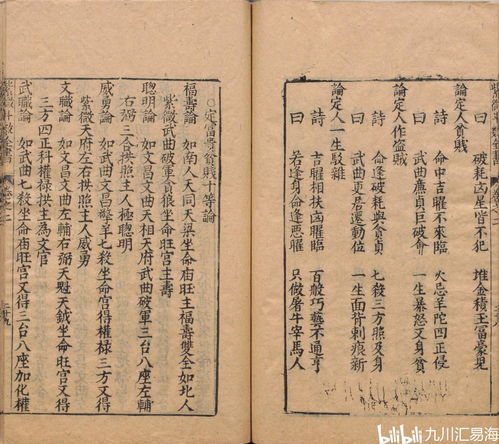 破耗凶星皆不犯　堆金積玉富豪兒
論定人貧賤
詩　命中吉曜不來臨　火忌羊陀四正侵
曰　武曲廉貞巨破會　一生暴怒又身貧
論定人作盜賊
詩　命逢破耗與貪貞　七殺三方照及身
曰　武曲更居遷動位　一生面背刺痕新
論定人一生駁雜
詩　吉曜相扶凶曜臨　百般巧藝不通亨
曰　若逢身命逢惡曜　只做屠牛宰馬人
○定富貴貧賤十等論
福壽論　如南人天同天梁坐命廟旺主福壽雙全如北人
紫微武曲破軍貪狼坐命旺宮主壽
聰明論　如文昌文曲天相天府武曲破軍三台八座左輔
右弼三合拱照主人極聰明
威勇論　如武曲文昌擎羊七殺坐命宮得權祿三方又得
紫微天府左右拱照主人威勇
文職論　如文昌文曲左輔右弼天魁天鉞坐命旺宮又得
三方四正科權祿拱主為文官
武職論　如武曲七殺坐命廟旺宮又得三台八座加化權
bilibili 九川汇易海